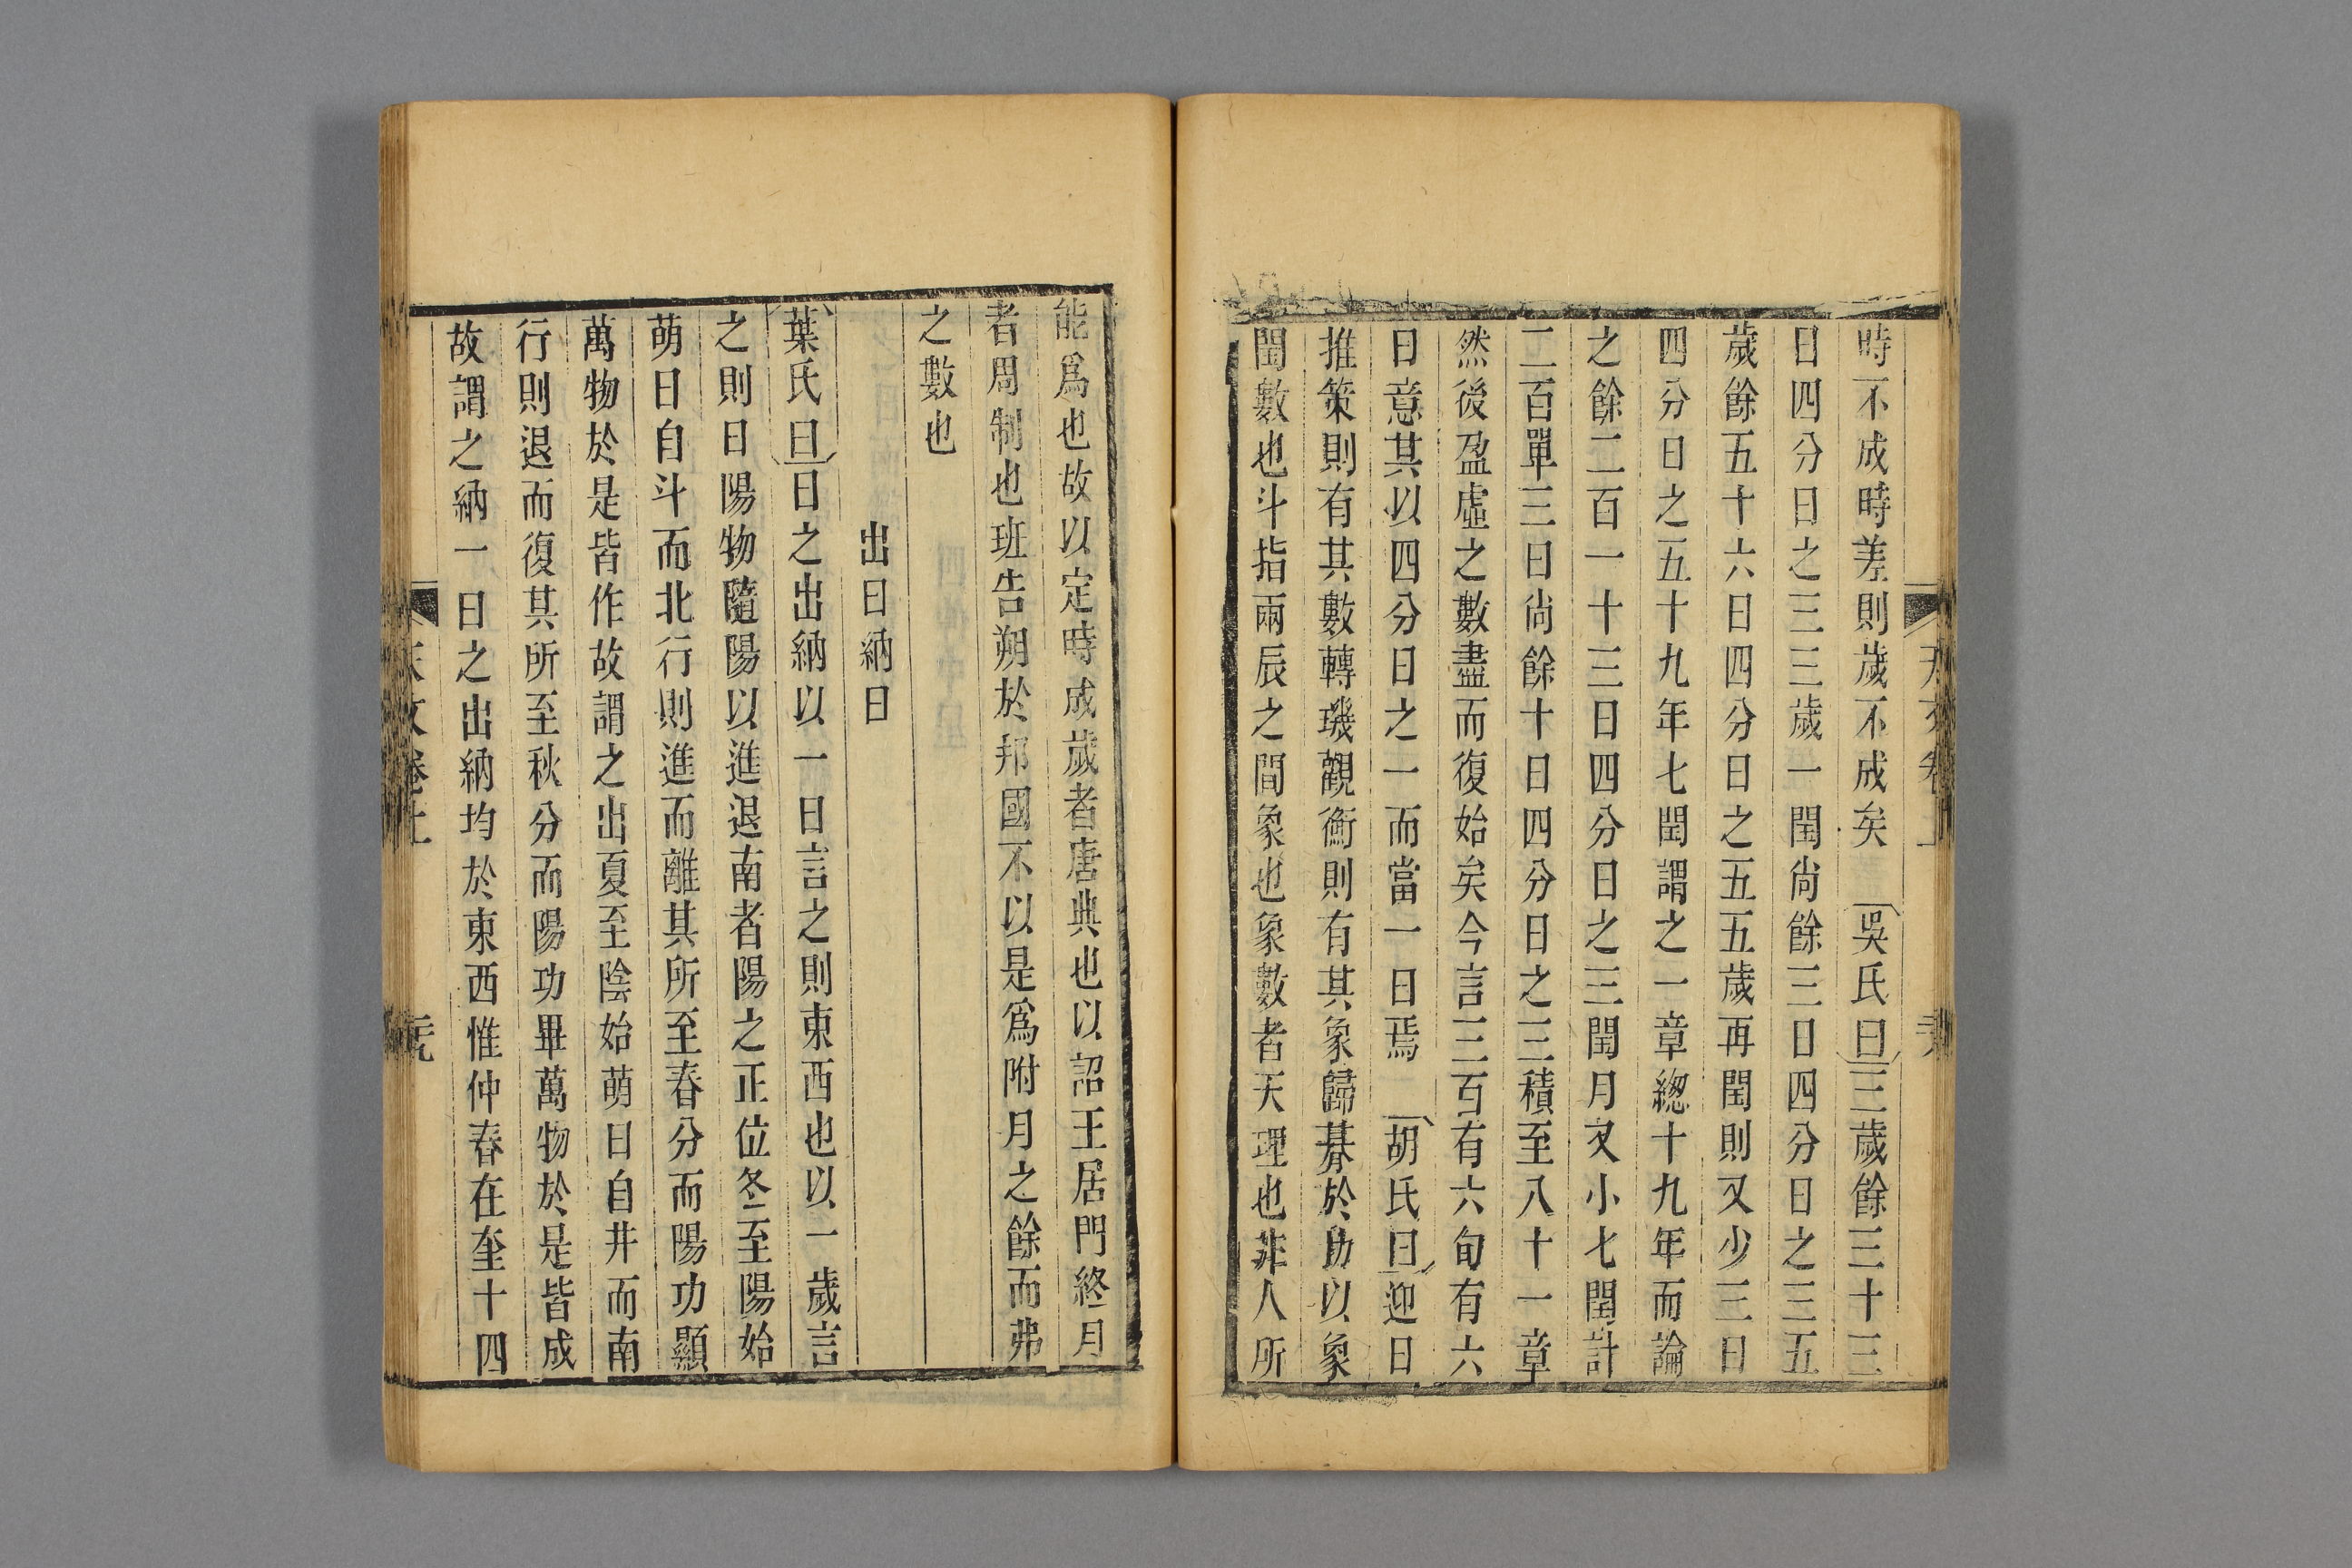 時不成時差則歲不成矣 吳氏曰三歲餘三十三
日四分日之三三歲一閏尚餘三日四分日之三五
歲餘五十六日四分日之五五歲再閏則又少三日
四分日之五十九年七閏謂之一章總十九年而論
之餘二百一十三日四分日之三閏月又小七閏計
二百單三日尙餘十日四分日之三積至八十一章
然後盈虛之數盡而復始矣今言三百有六旬有六
日意其以四分日之一而當一日焉 胡氏曰迎日
推策則有其數轉璣觀衡則有其象歸朞於扐以象
閏數也斗指兩辰之間象也象數者天理也非人所
能爲也故以定時成歲者唐典也以詔王居門終月
者周制也班告朔於邦國不以是爲附月之餘而弗
之數也
出日納日
葉氏曰日之出納以一日言之則東西也以一歲言
之則日陽物隨陽以進退南者陽之正位冬至陽始
萌日自斗而北行則進而離其所至春分而陽功顯
萬物於是皆作故謂之出夏至陰始萌日自井而南
行則退而復其所至秋分而陽功畢萬物於是皆成
故謂之納一日之出納均於東西惟仲春在奎十四
天文卷上